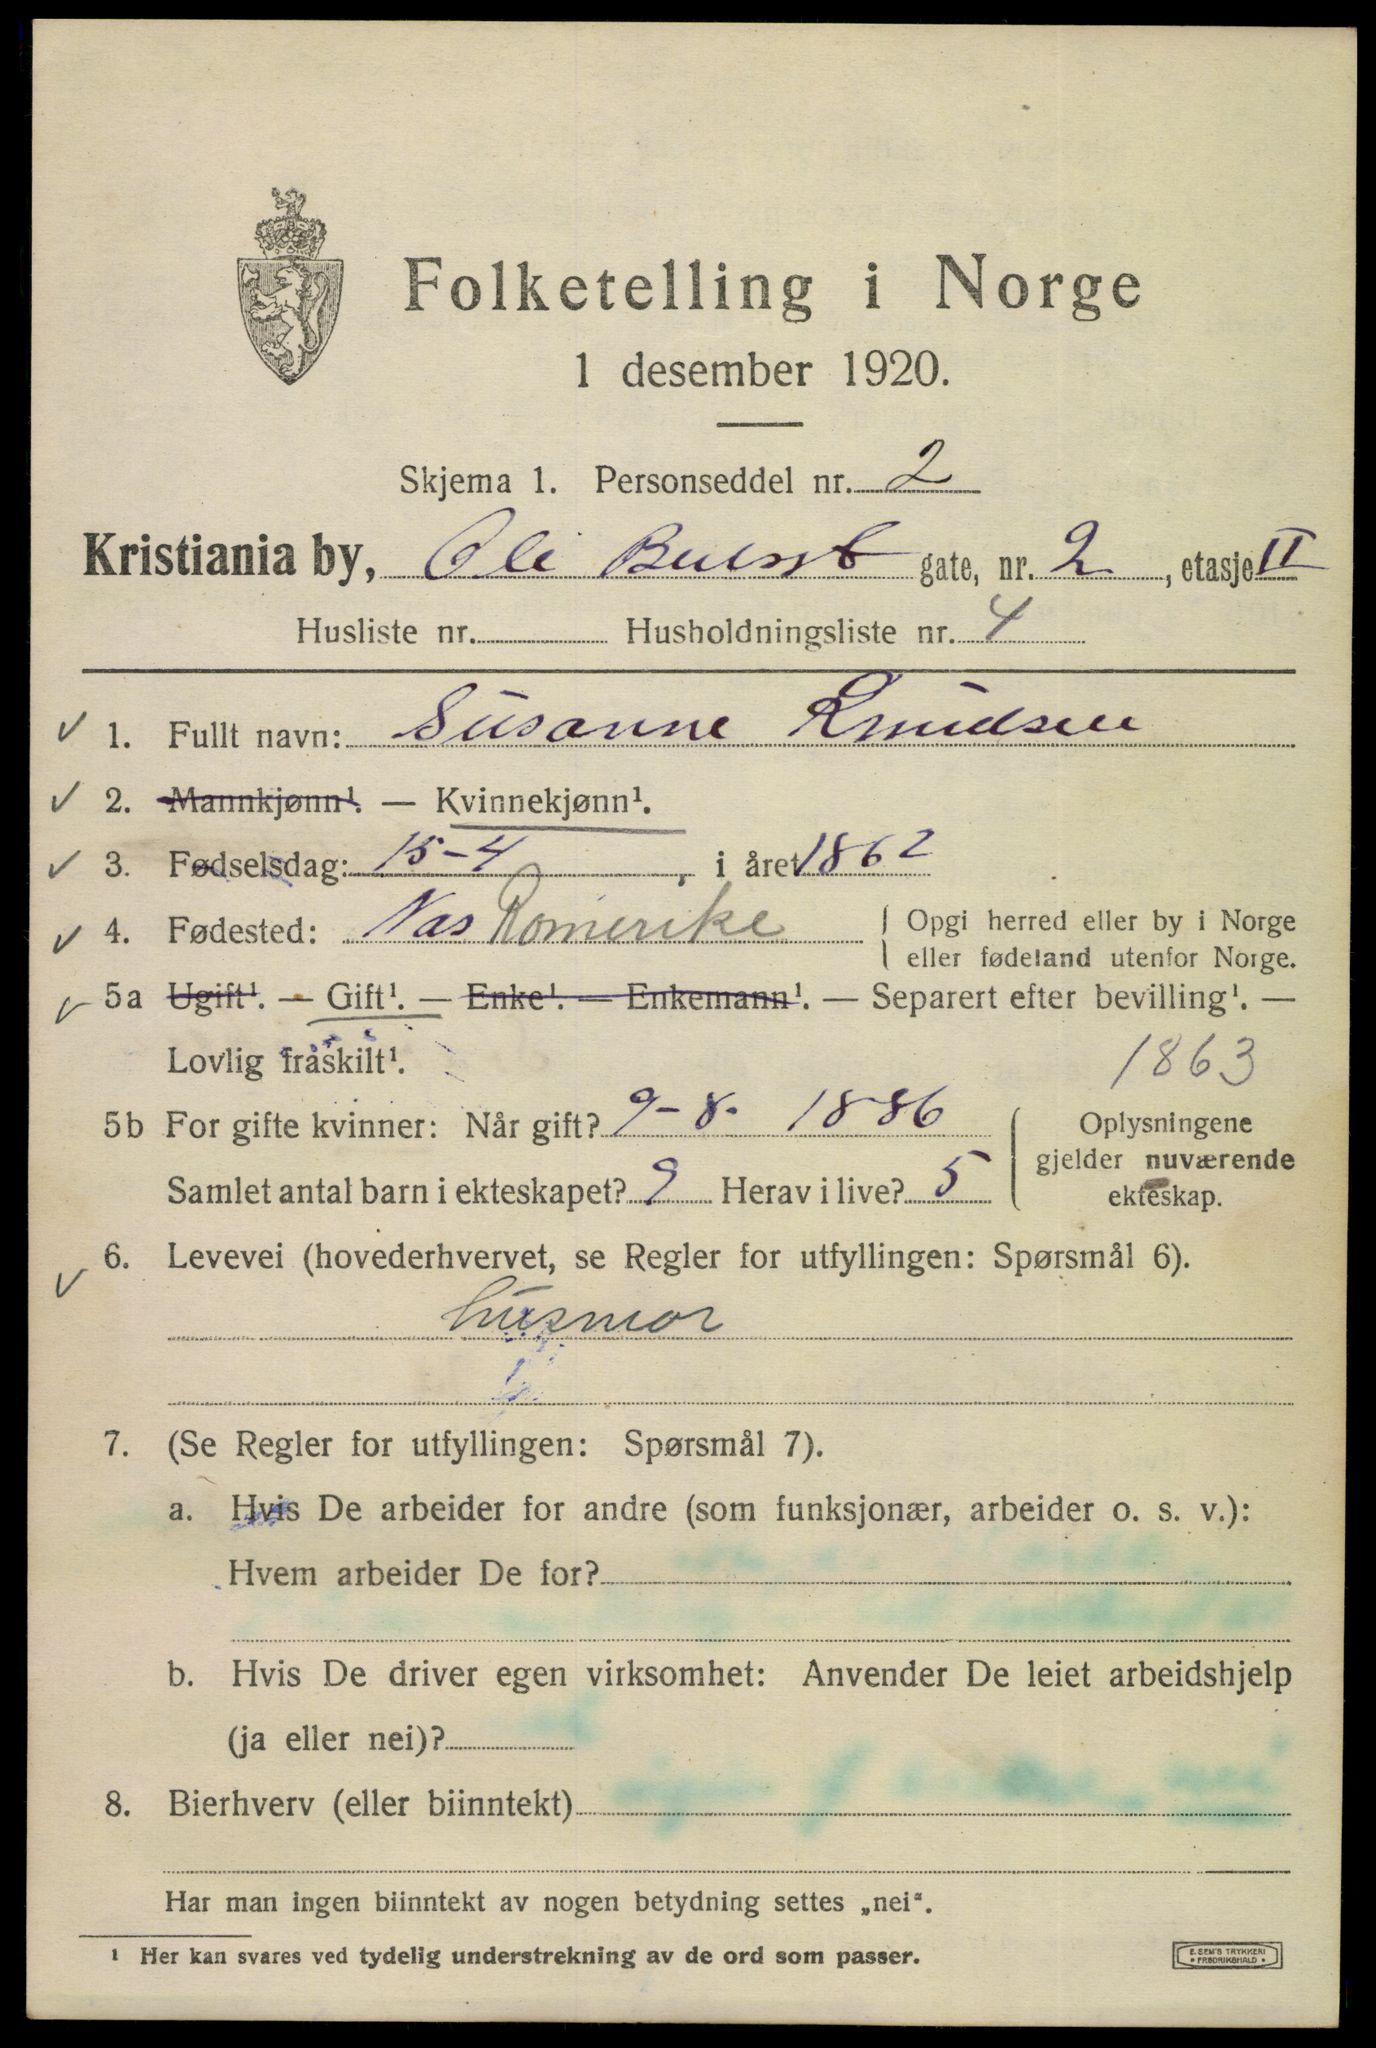 Folketelling i Norge
1 desember 1920.
Skjema 1. Personseddel nr. 2
Kristiania by, Ole Bullsst gate, nr. 2, etasje II
Husliste nr. Husholdningsliste nr. 4
1. Fullt navn: Susanne Knudsen
2. Mannkjønn¹. — Kvinnekjønn¹.
3. Fødselsdag: 15-4, i året 1862
4. Fødested: Nas Romerike { Opgi herred eller by i Norge
eller fødeland utenfor Norge.
5a Ugift¹. — Gift¹. — Enke¹. — Enkemann¹. — Separert efter bevilling¹. —
Lovlig fraskilt¹. 1863
5b For gifte kvinner: Når gift? 9-8- 1886
Samlet antal barn i ekteskapet? 9 Herav i live? 5
Oplysningene
gjelder nuværende
ekteskap.
6. Levevei (hovederhvervet, se Regler for utfyllingen: Spørsmål 6).
husmor
7. (Se Regler for utfyllingen: Spørsmål 7).
a. Hvis De arbeider for andre (som funksjonær, arbeider o. s. v.):
Hvem arbeider De for?
b. Hvis De driver egen virksomhet: Anvender De leiet arbeidshjelp
(ja eller nei)?
8. Bierhverv (eller biinntekt)
Har man ingen biinntekt av nogen betydning settes „nei".
¹ Her kan svares ved tydelig understrekning av de ord som passer.
E. SEM'S TRYKKERI
• FREDRIKSHALD •